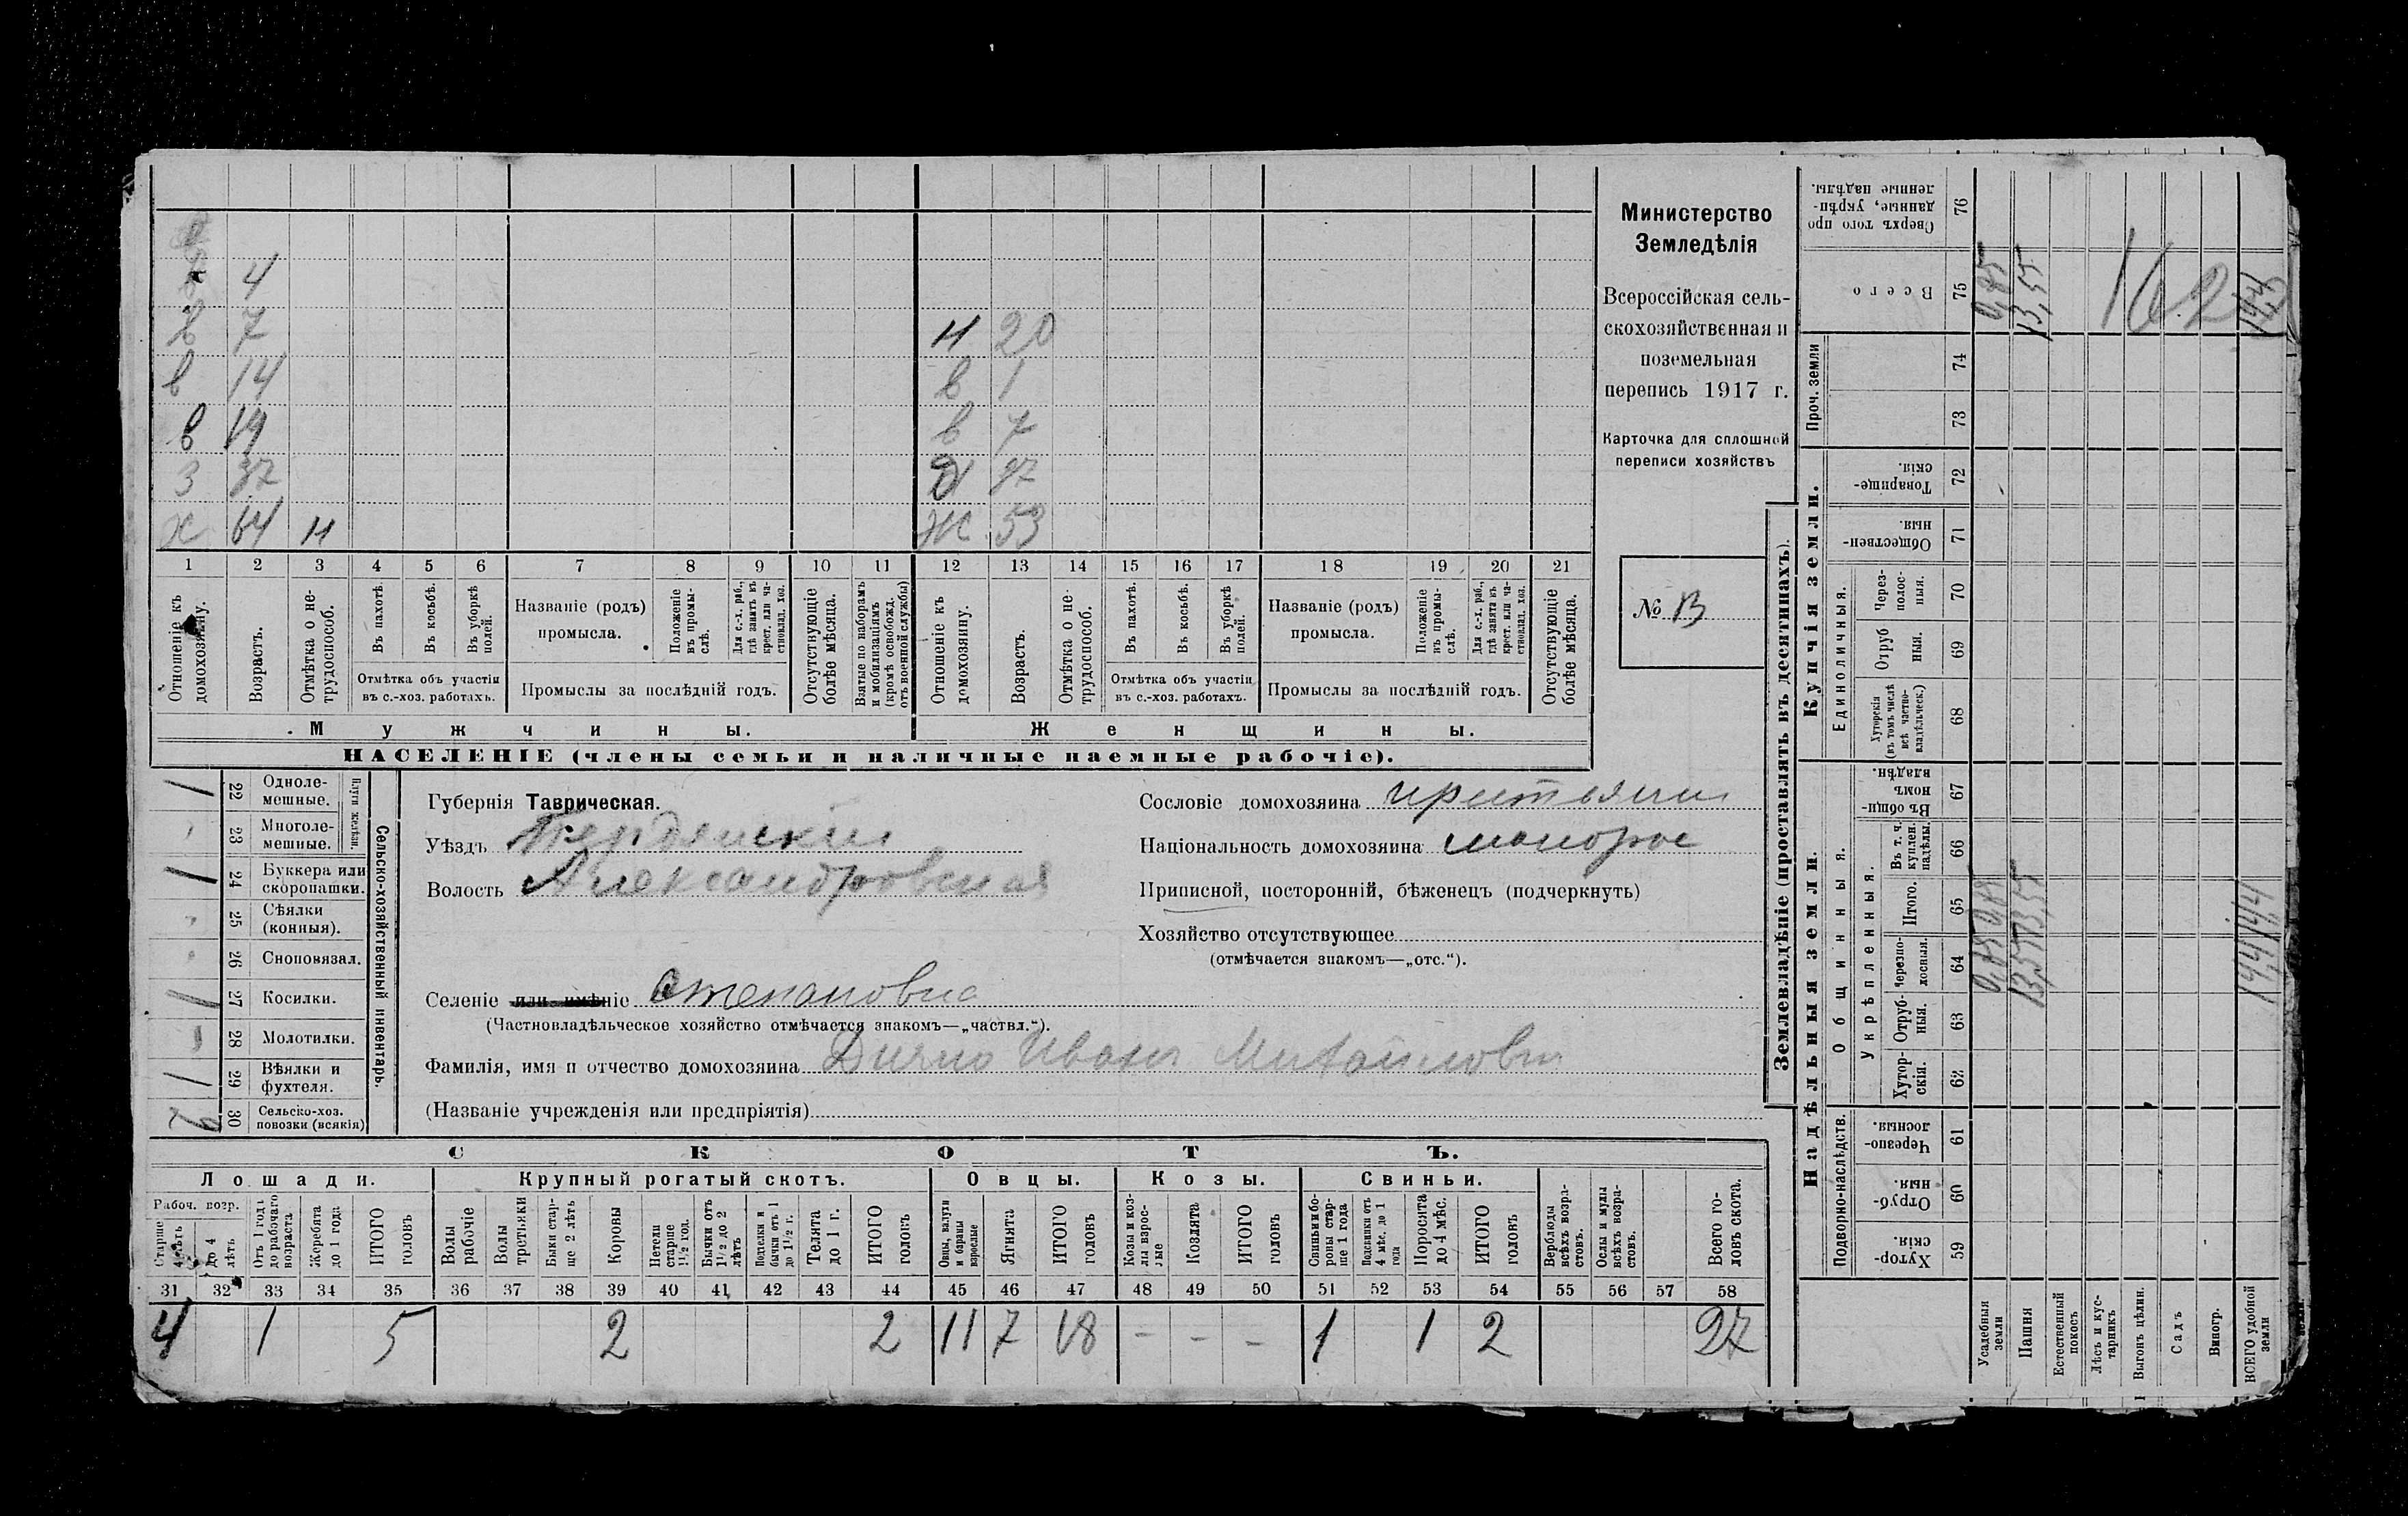 4
в 7 н 20
в 14 в 1
в 19 в 7
з 37 37
х 64 н ж 53
1 2 3 4 5 6 7 8 9 10 11 12 13 14 15 16 17 18 19 20 21
Отношеніе къ домохозяину.
Возрастъ.
Отмѣтка о не-трудоспособ.
Въ пахотѣ.
Въ косьбѣ.
Въ уборкѣ полей.
Отмѣтка объ участіи
въ с.-хоз. работахъ.
Названіе (родъ)
промысла.
Положеніе въ промы-слѣ.
Для с.-х. раб., гдѣ занятъ въ крест. или ча-стновлад. хоз.
Промыслы за послѣдній годъ.
Отсутствующіе болѣе мѣсяца.
Взятые по наборамъ и мобилизаціямъ (кромѣ освобожд. отъ военной службы)
Отношеніе къ домохозяину.
Возрастъ.
Отмѣтка о не-трудоспособ.
Въ пахотѣ.
Въ косьбѣ.
Въ уборкѣ полей.
Отмѣтка объ участіи
въ с.-хоз. работахъ.
Названіе (родъ)
промысла.
Положеніе въ промы-слѣ.
Для с.-х. раб., гдѣ занята въ крест. или ча-стновлад. хоз.
Промыслы за послѣдній годъ.
Отсутствующіе болѣе мѣсяца.
Мужчины. Женщины.
НАСЕЛЕНІЕ (члены семьи и наличные наемные рабочіе).
Министерство
Земледѣлія
Всероссійская сель-
скохозяйственная и
поземельная
перепись 1917 г.
Карточка для сплошной
переписи хозяйствъ
№ 13
Сельско-хозяйственный инвентарь.
Плуги желѣзн.
1 22 Одноле-мешные.
23 Многоле-мешные.
1 24 Буккера или скоропашки.
25 Сѣялки (конныя).
26 Сноповязал.
1 27 Косилки.
28 Молотилки.
1 29 Вѣялки и фухтеля.
2 30 Сельско-хоз. повозки (всякія)
Губернія Таврическая.
Уѣздъ Бердянскій
Волость Александровская
Селеніе или имѣніе Степановка
(Частновладѣльческое хозяйство отмѣчается знакомъ—„частвл.“).
Фамилія, имя и отчество домохозяина Дичко Иванъ Михайлович
(Названіе учрежденія или предпріятія)
Сословіе домохозяина
Національность домохозяина малорос
Приписной, посторонній, бѣженецъ (подчеркнуть)
Хозяйство отсутствующее
(отмѣчается знакомъ—„отс.“).
СКОТЪ.
Лошади. Крупный рогатый скотъ. Овцы. Козы. Свиньи.
Рабоч. возр.
Старше 4 лѣтъ
До 4 лѣтъ
Отъ 1 года до рабочаго возраста
Жеребята до 1 года
ИТОГО головъ
Волы рабочіе
Волы третьяки
Быки стар-ше 2 лѣтъ
Коровы
Нетели старше 1½ год.
Бычки отъ 1½ до 2 лѣтъ
Подтелки и бычки отъ 1 до 1½ г.
Телята до 1 г.
ИТОГО головъ
Овцы, валухи и бараны взрослые
Ягнята
ИТОГО головъ
Козы и коз-лы взрос-лые
Козлята
ИТОГО головъ
Свиньи и бо-ровы стар-ше 1 года
Подсвинки отъ 4 мѣс. до 1 года
Поросята до 4 мѣс.
ИТОГО головъ
Верблюды всѣхъ возра-стовъ.
Ослы и мулы всѣхъ возра-стовъ.
Всего го-ловъ скота.
31 32 33 34 35 36 37 38 39 40 41 42 43 44 45 46 47 48 49 50 51 52 53 54 55 56 57 58
4 1 5 2 2 11 7 18 - - - 1 1 2 27
Землевладѣніе (проставлять въ десятинахъ).
Купчія земли.
Надѣльныя земли.
Сверхъ того про данные, укрѣп-ленные надѣлы. 76
Всего 75 0,85 13,55 162
Проч. земли 74 73
Товарище-скія. 72
Обществен-ныя. 71
Единоличныя.
Через-полос-ныя. 70
Отруб ныя. 69
Хуторскія (въ томъ числѣ всѣ частно-владѣльческ.) 68
Общинныя.
Въ общи-номъ владѣн. 67
Укрѣпленныя.
Въ т. ч. куплен. надѣлы. 66
Итого. 65 13,55
Черезпо-лосныя. 64 13,55
Отруб-ныя. 63
Хутор-скія. 62
Подворно-наслѣдств.
Черезпо-лосныя. 61
Отруб-ныя. 60
Хутор-скія. 59
Усадебныя земли
Пашня
Естественный покосъ
Лѣсъ и кус-тарникъ
Выгонъ цѣлин.
Садъ
Виногр.
ВСЕГО удобной земли